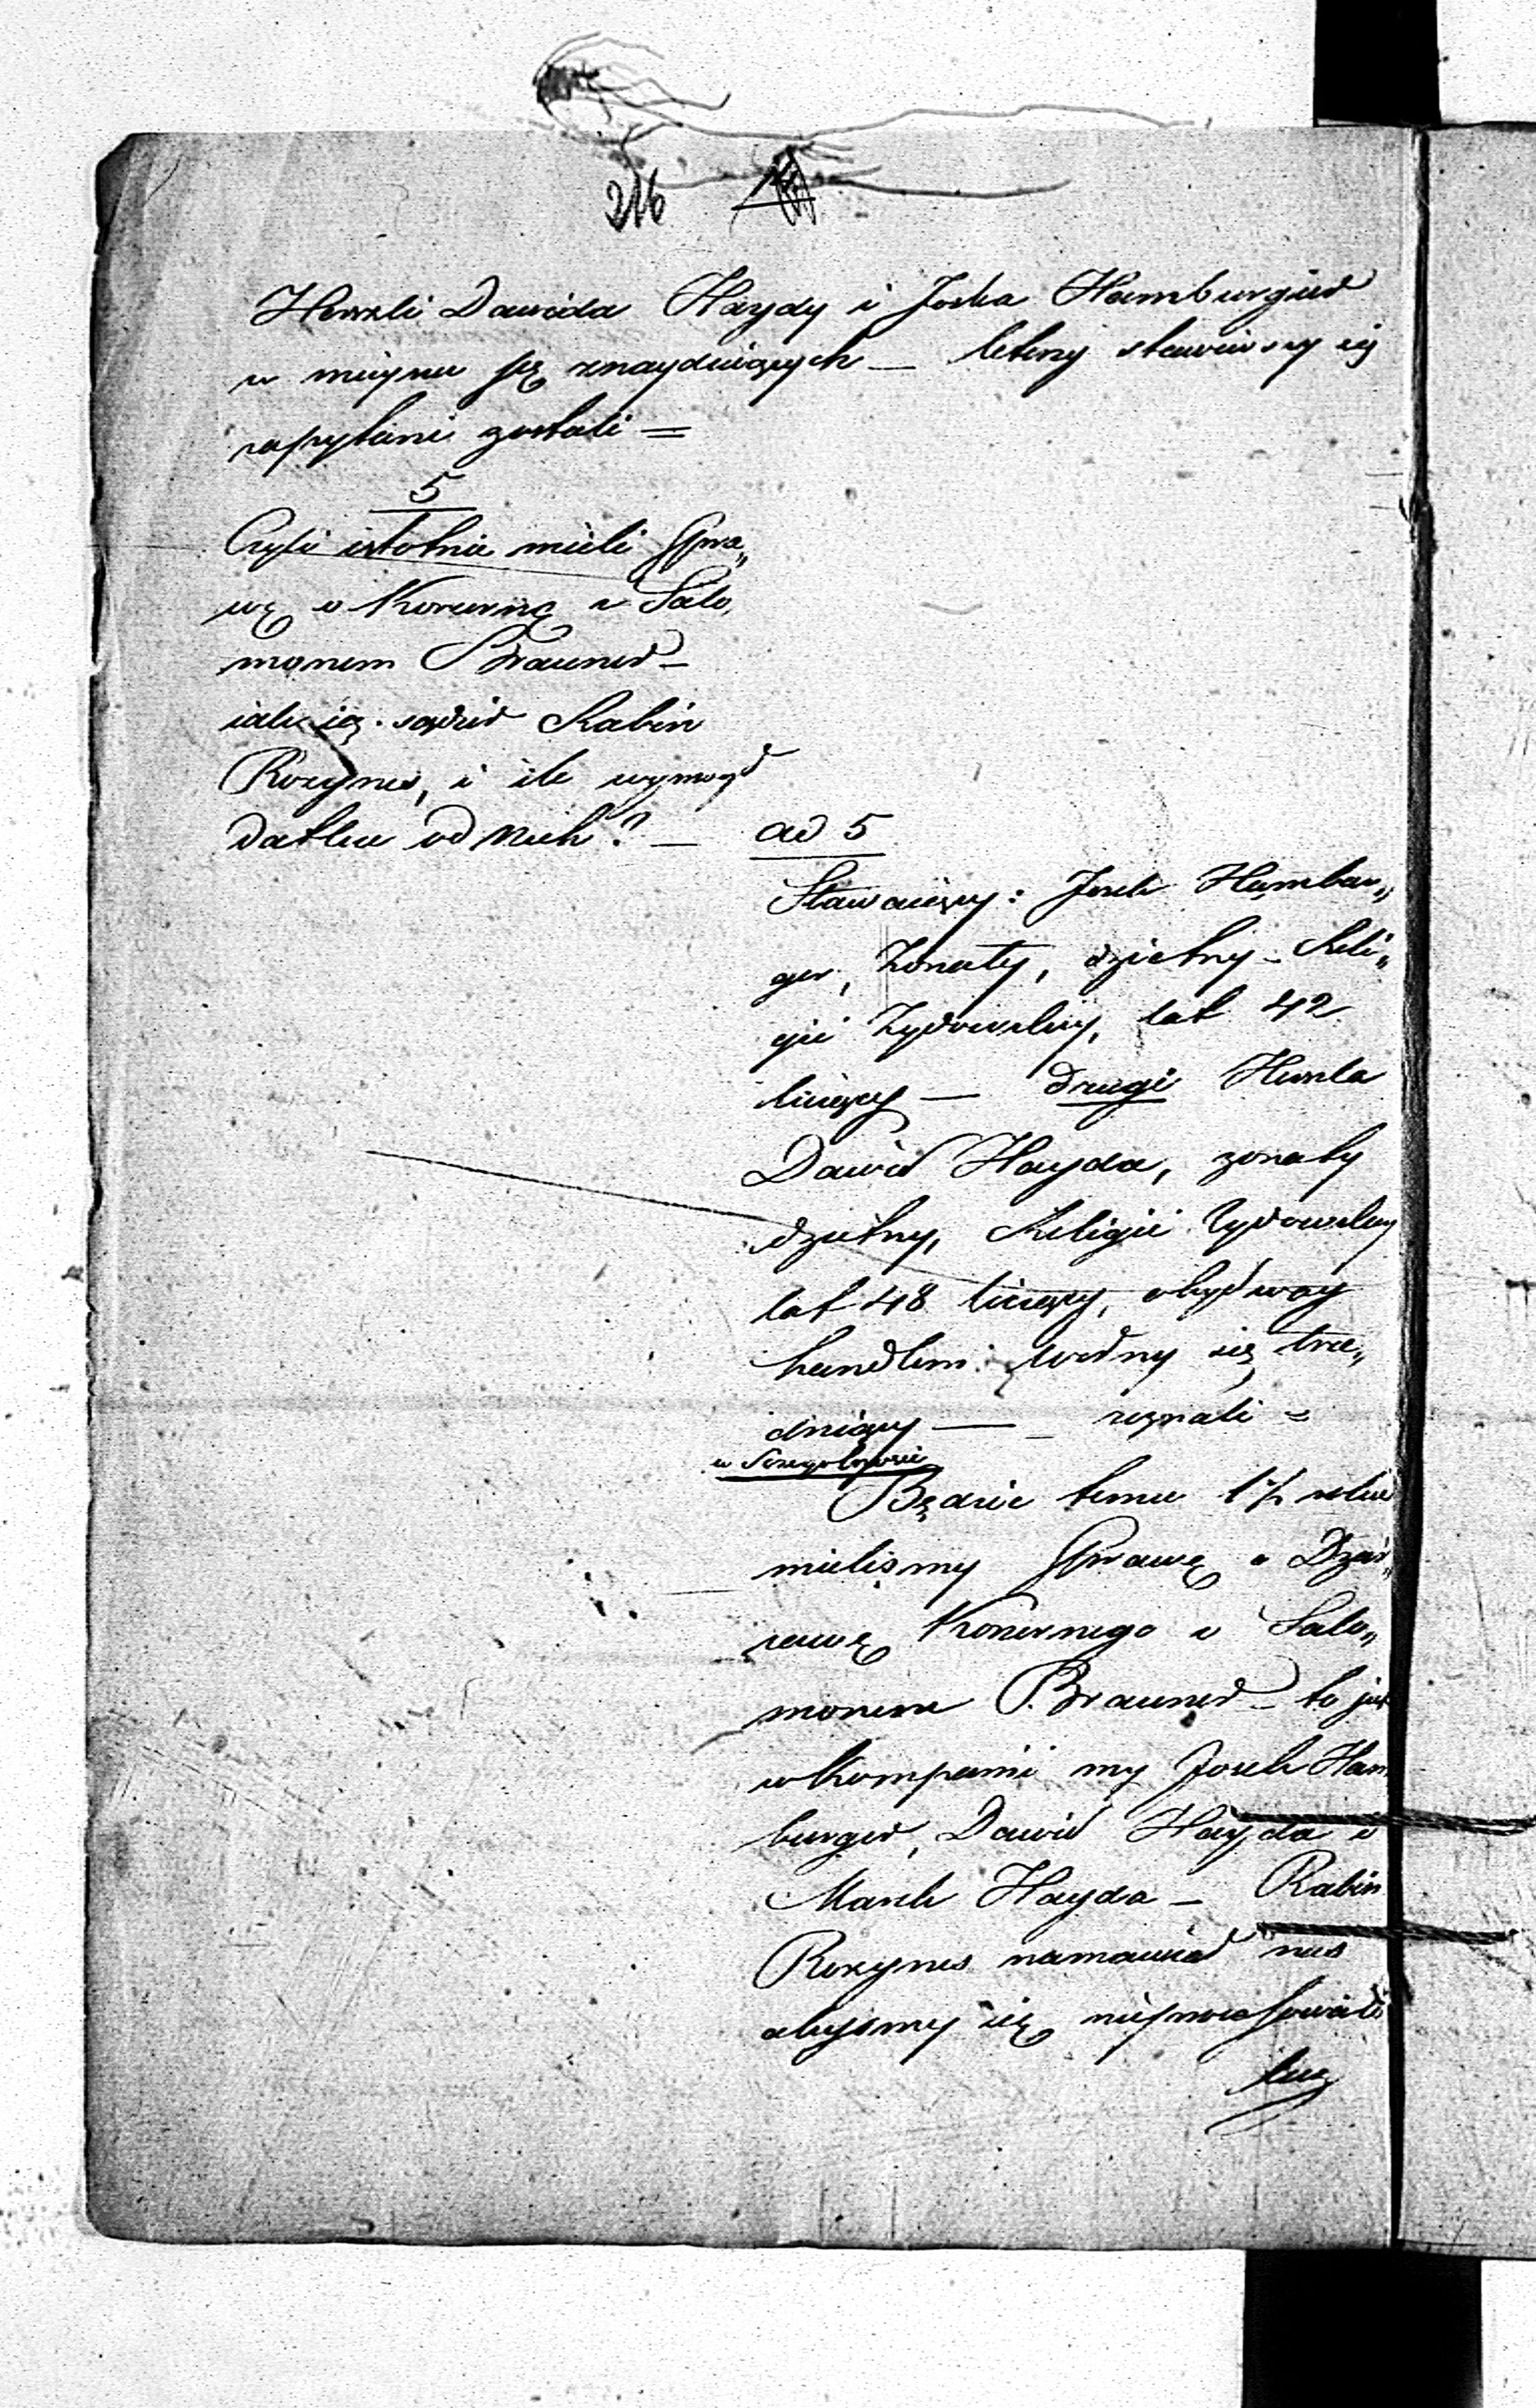 216
Herszli Dawida Haydy i Joska Hamburgier
w mieyscu się znayduiących — którzy stawiwszy się
zapytani zostali =
5
Czyli istotnie mieli Spra„
wę o Koszerne z Salo„
monem Brauner —
iak ią sądził Rabin
Rozynes, i ile wymógł
datku od nich? —
ad 5
Stawaiący: Josek Hambur„
ger, Zonaty, dzietny — Reli„
gii Zydowskiey, lat 42
liczący — drugi Herszla
Dawid Hayda, zonaty
dzietny, Religii Zydowskiey
lat 48 liczący, obydway
handlem się tru„
dniący — zeznali =
Będzie temu 1½ roku
mieliśmy Sprawę o Dzier„
zawę Koszernego z Salo„
monem Brauner — to jest
w kompanii my Josek Ham
burger, Dawid Hayda i
Marek Hayda — Rabin
Rozynes namawiał nas
abyśmy się nieprocessowali
lecz